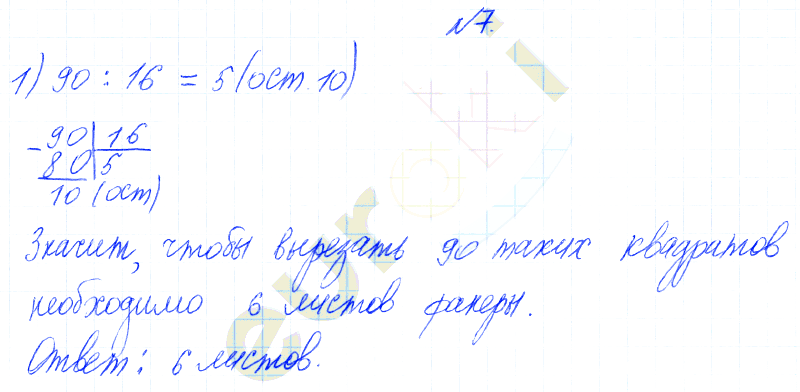 №7.
1) 90 : 16 = 5 (ост. 10)
- 90 | 16
80 | 5
10 (ост)
Значит, чтобы вырезать 90 таких квадратов
необходимо 6 листов фанеры.
Ответ: 6 листов.
euroki